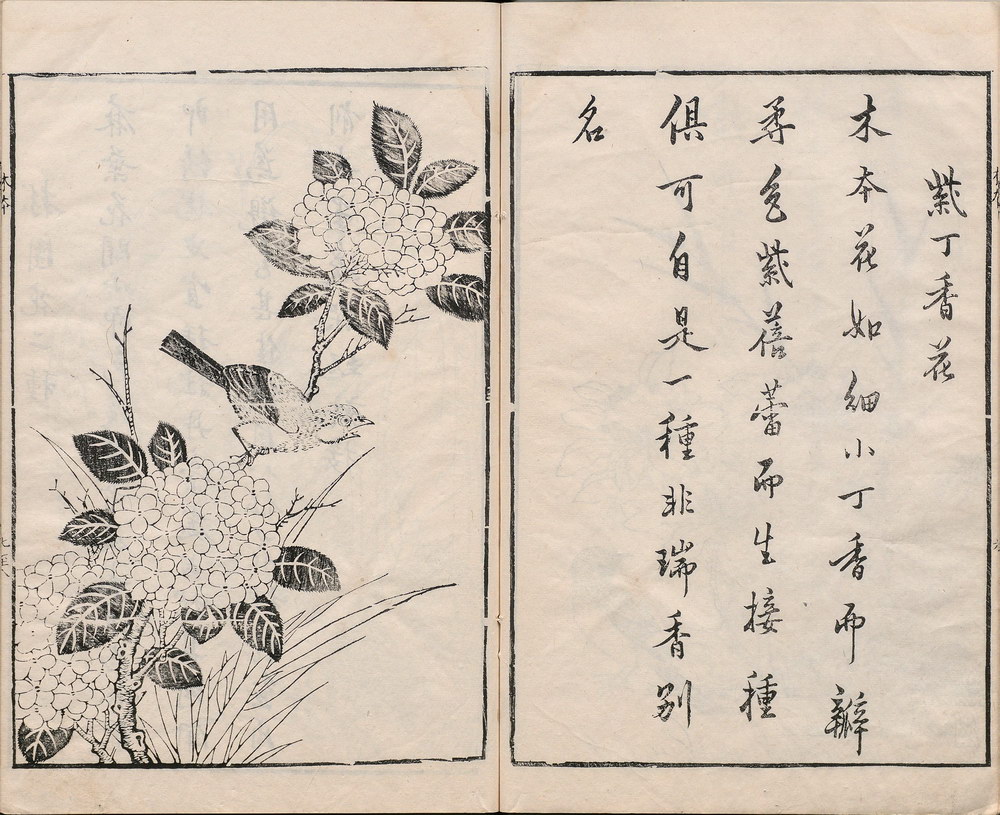 紫丁香花
木本花如細小丁香而瓣
柔色紫蓓蕾而生接種
俱可自是一種非瑞香別
名
木本